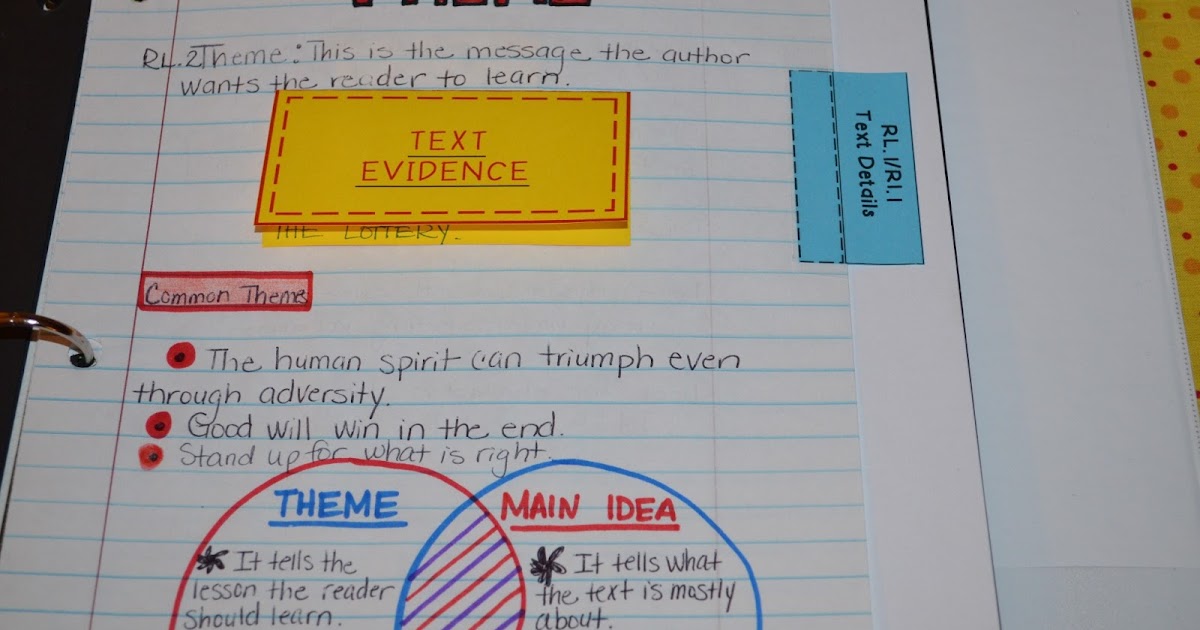 THEME
RL.2 Theme: This is the message the author
wants the reader to learn.
TEXT
EVIDENCE
THE LOTTERY.
RL.1/RI.1
Text Details
Common Theme
The human spirit can triumph even
through adversity.
Good will win in the end.
Stand up for what is right.
THEME
It tells the
lesson the reader
should learn.
MAIN IDEA
It tells what
the text is mostly
about.